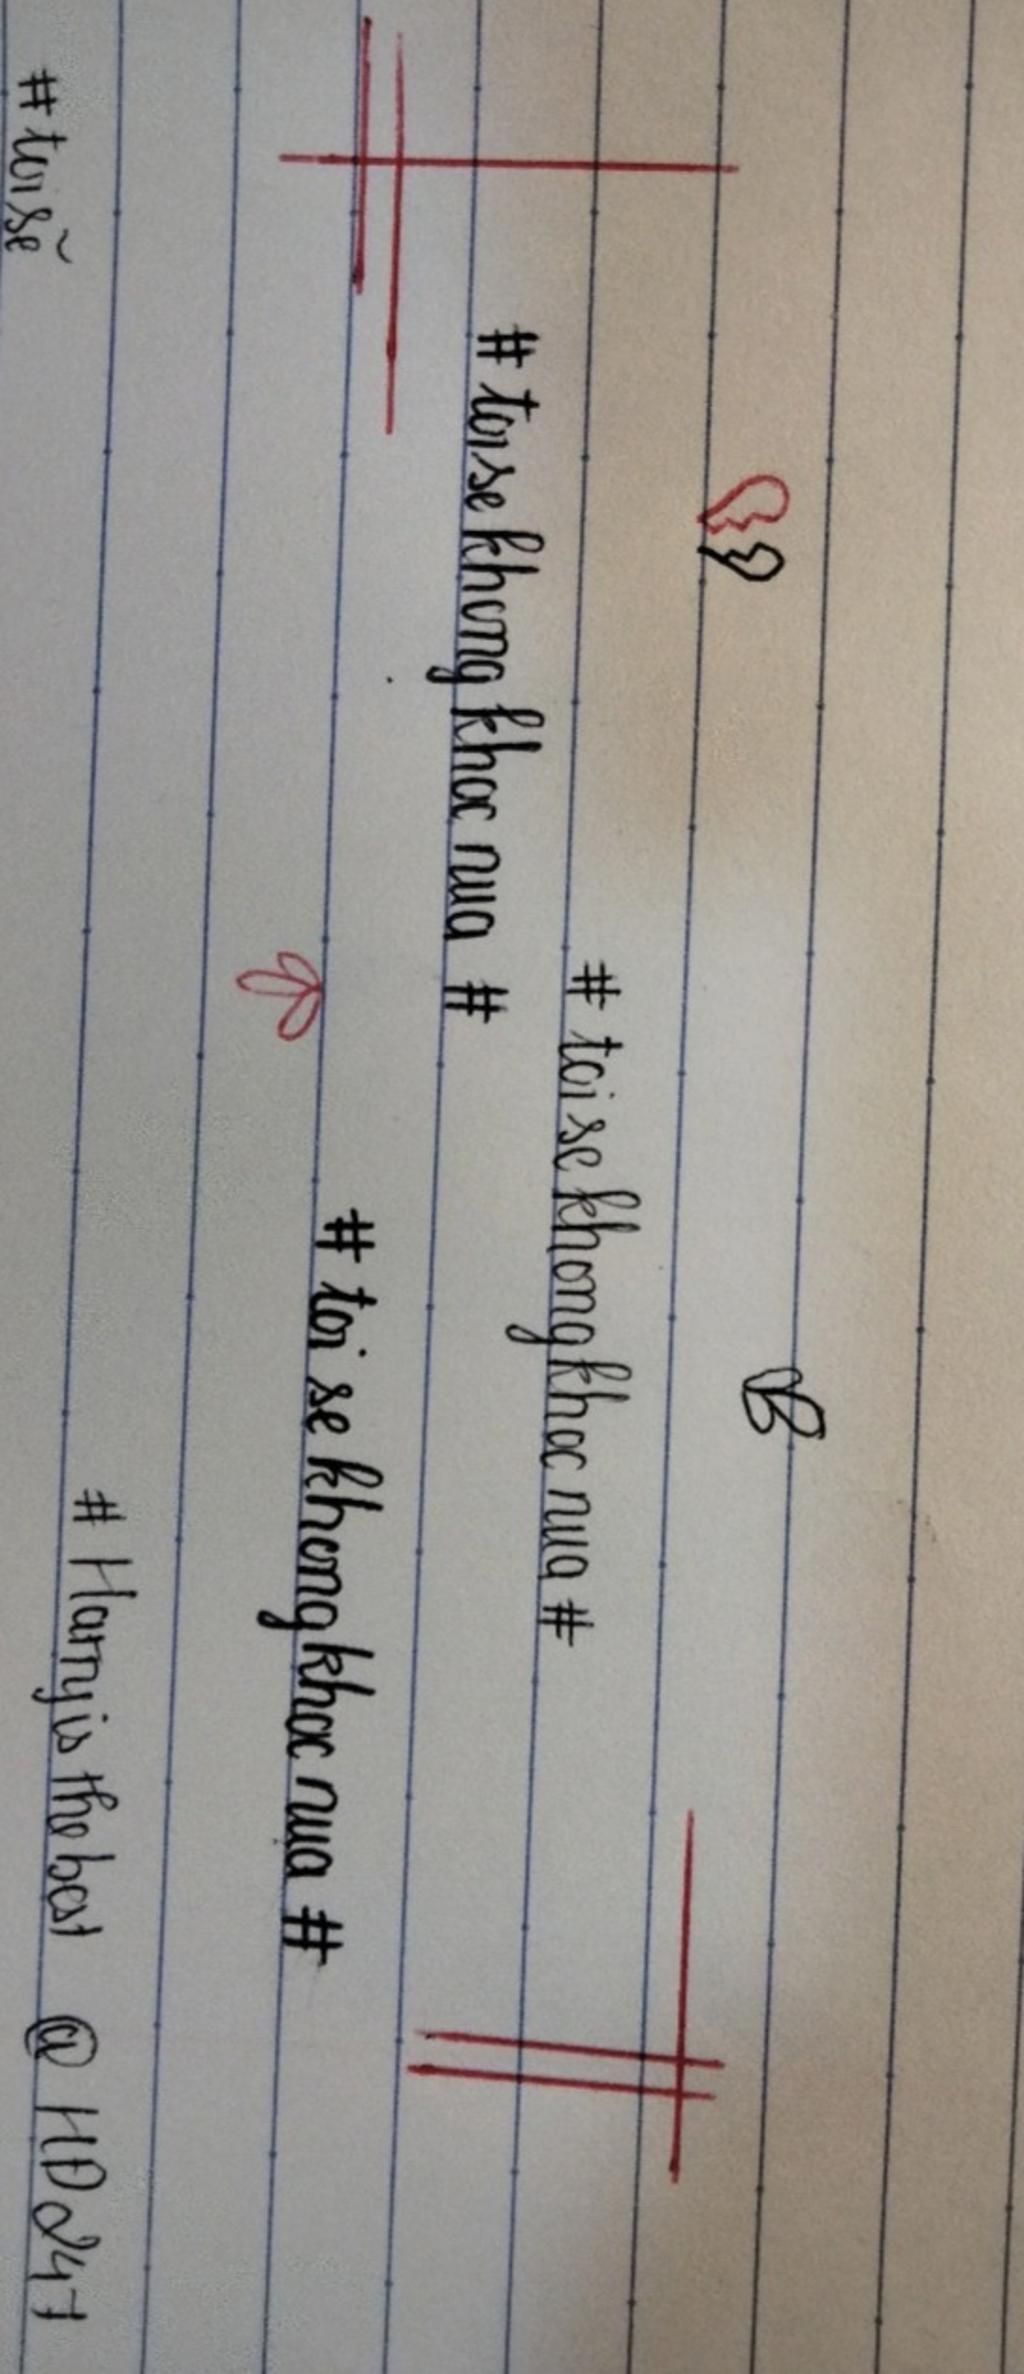 # toi se khong khoc nua #
# toi se khong khoc nua #
# toi se khong khoc nua #
# Harry is the best @ HD247
# toi sẽ